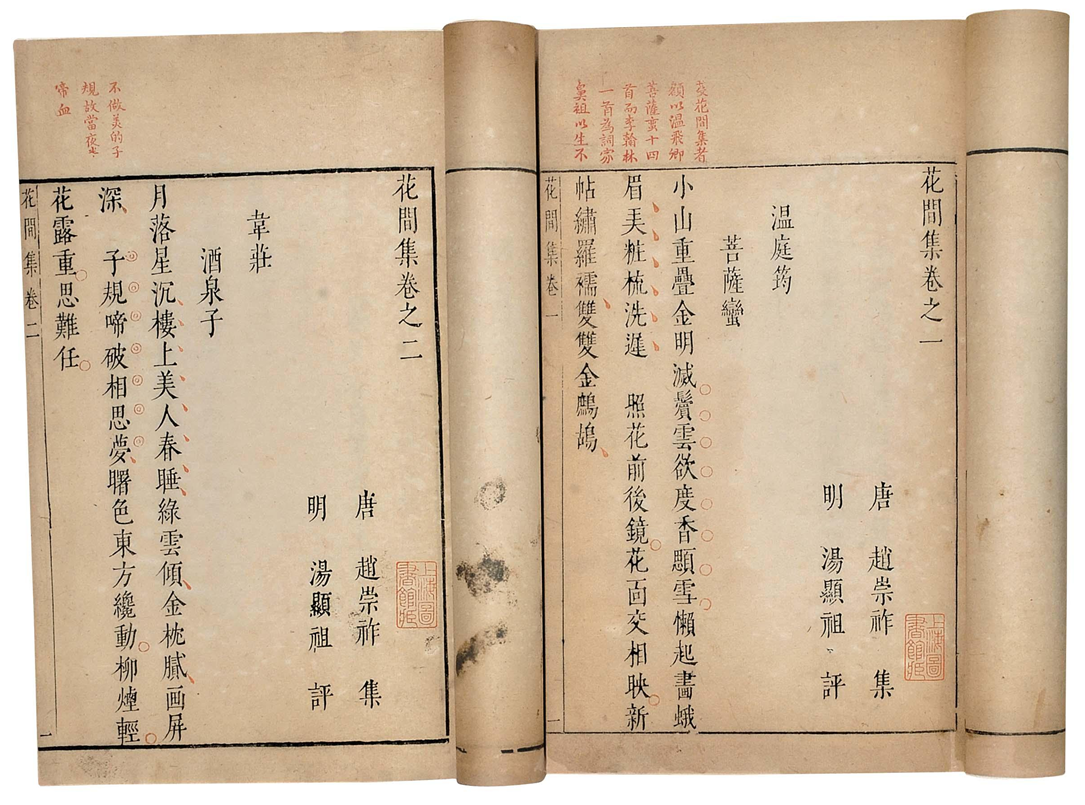 芟花間集者
額以溫飛卿
菩薩蠻十四
首而李翰林
一首為詞家
鼻祖以生不
花間集卷之一
唐 趙崇祚 集
明 湯顯祖 評
溫庭筠
菩薩蠻
小山重疊金明滅鬢雲欲度香顋雪懶起畵蛾
眉弄粧梳洗遲 照花前後鏡花面交相映新
帖繡羅襦雙雙金鷓鴣
花間集卷一
一
上海圖
書館藏
不做美的子
規故當夜〻
啼血
花間集卷之二
唐 趙崇祚 集
明 湯顯祖 評
韋莊
酒泉子
月落星沉樓上美人春睡綠雲傾金枕膩画屏
深 子規啼破相思夢曙色東方纔動柳煙輕
花露重思難任
花間集卷二
一
上海圖
書館藏